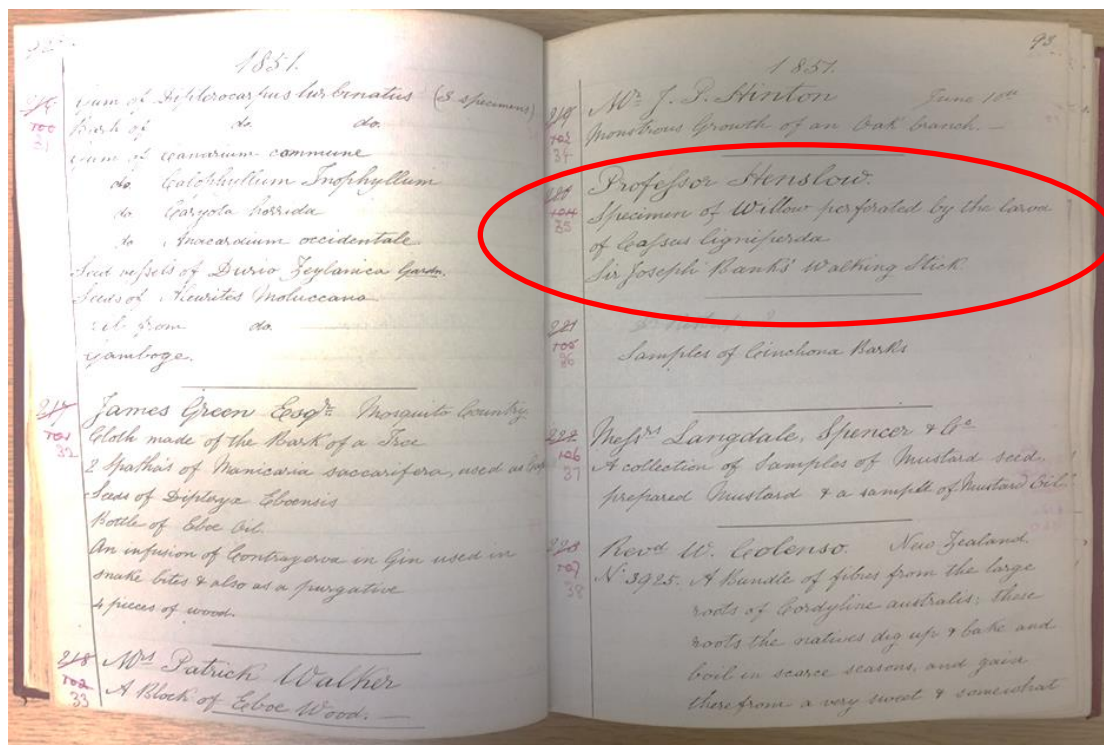 92
1851.
216
100
31
Gum of Dipterocarpus turbinatus (3 specimens)
Bark of do. do.
Gum of Canarium commune
do Calophyllum Inophyllum
do Caryota horrida
do Anacardium occidentale
Seed vessels of Durio Zeylanica Gardn.
Seeds of Aleurites Moluccana
Oil from do.
Gamboge.
217
101
32
James Green Esqre Mosquito Country
Cloth made of the Bark of a Tree
2 Spatha's of Manicaria saccarifera, used as Caps
Seeds of Dipteryx Eboensis
Bottle of Eboe Oil.
An infusion of Contrayerva in Gin used in
snake bites & also as a purgative
4 pieces of wood.
218
102
33
Mrs Patrick Walker
A Block of Eboe Wood.—
93
1851.
219
103
34
Mr J. P. Hinton June 10th
Monstrous Growth of an Oak branch.—
220
104
35
Professor Henslow.
Specimen of Willow perforated by the larva
of Cossus ligniperda
Sir Joseph Bank's Walking Stick.
221
105
36
Samples of Cinchona Barks
222
106
37
Messrs Langdale, Spencer & Co
A collection of Samples of Mustard seed,
prepared Mustard & a sample of Mustard Oil.
223
107
38
Revd W. Colenso. New Zealand.
No 3925. A Bundle of fibres from the large
roots of Cordyline australis; these
roots the natives dig up & bake and
boil in scarce seasons, and gain
therefrom a very sweet & somewhat